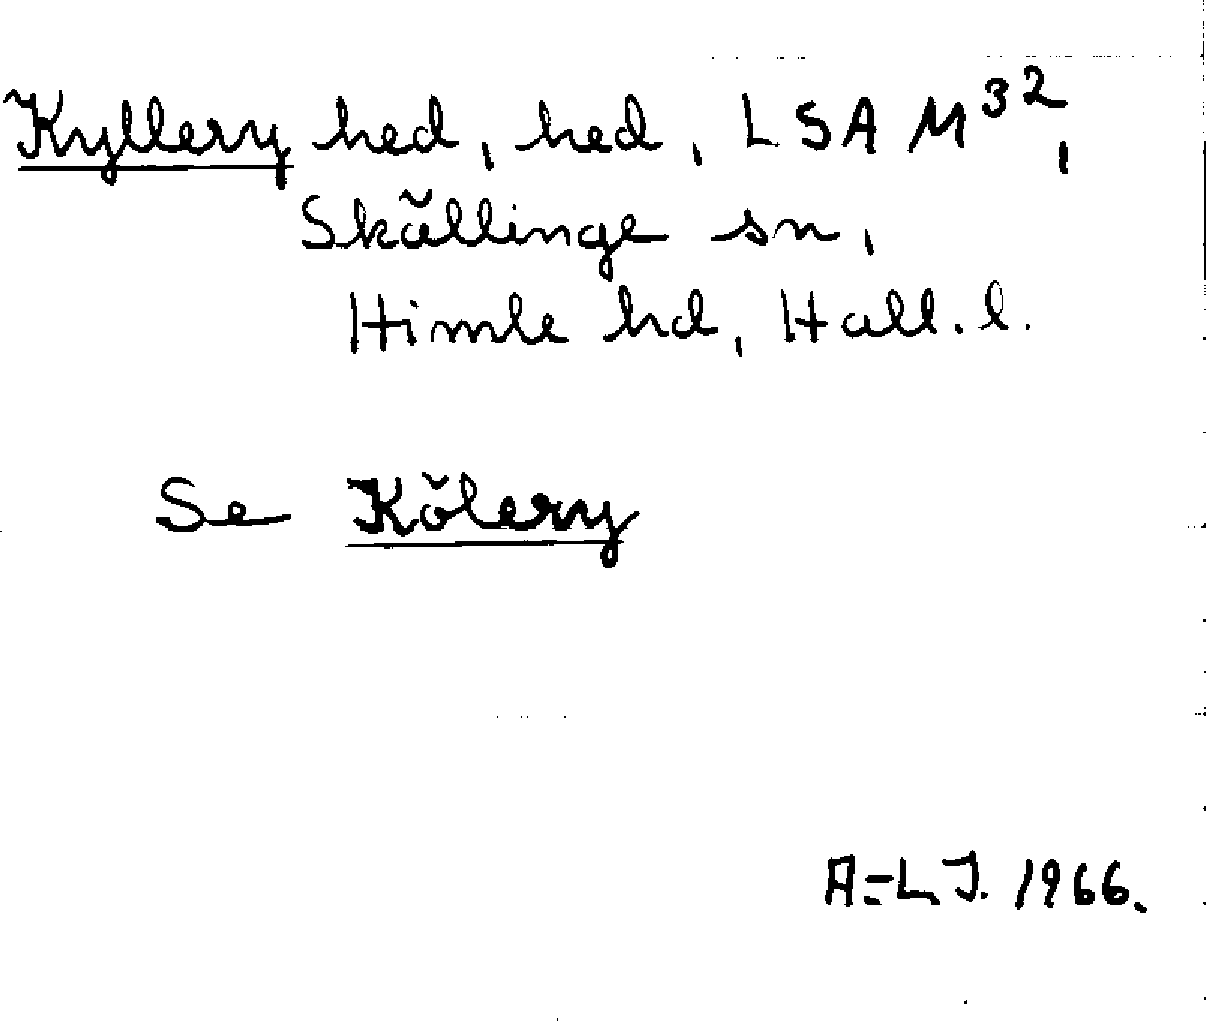 Kyllery hed, hed, LSA M³²,
Skällinge sn,
Himle hd, Hall. l.
Se Kölery
A=L J. 1966.